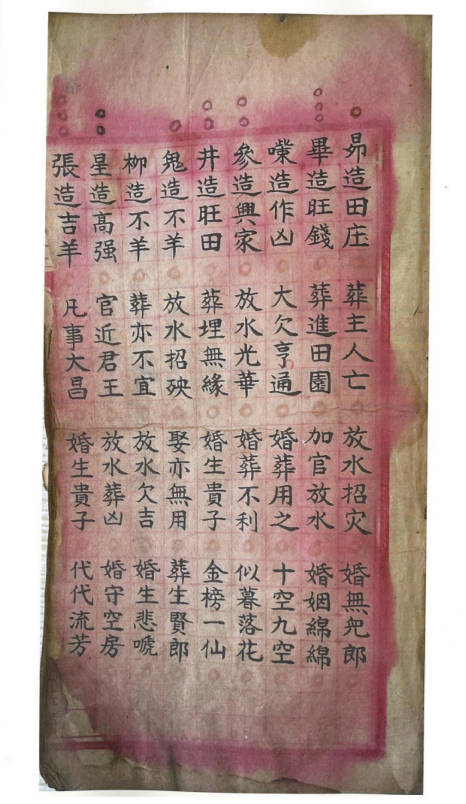 昴造田庄 葬主人亡 放水招灾 婚無児郎
畢造旺錢 葬進田園 加官放水 婚姻綿綿
嘴造作凶 大欠亨通 婚葬用之 十空九空
參造興家 放水光華 婚葬不利 似暮落花
井造旺田 葬埋無緣 婚生貴子 金榜一仙
鬼造不羊 放水招殃 娶亦無用 葬生賢郎
柳造不羊 葬亦不宜 放水欠吉 婚生悲啼
星造高强 官近君王 放水葬凶 婚守空房
張造吉羊 凡事大昌 婚生貴子 代代流芳